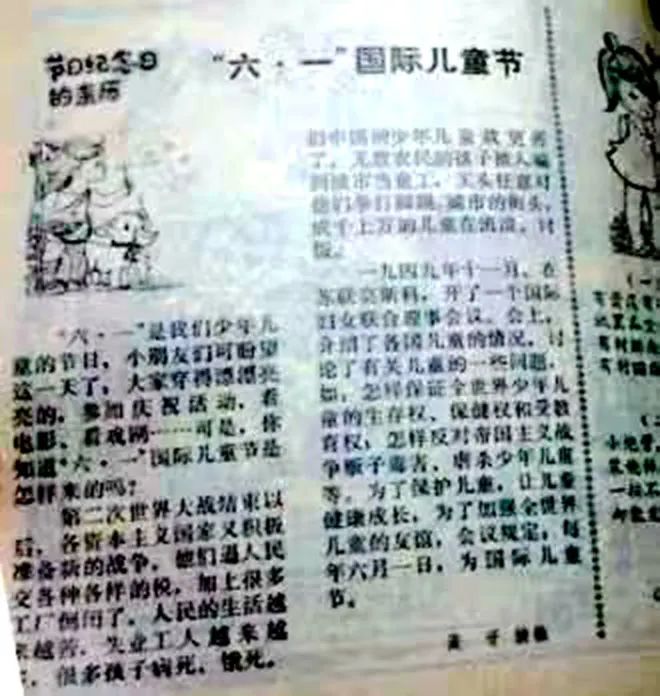 节日纪念日
的来历
“六·一”国际儿童节
“六·一”是我们少年儿
童的节日，小朋友们可盼望
这一天了，大家穿得漂漂亮
亮的，参加庆祝活动，看
电影、看戏啊……可是，你
知道“六·一”国际儿童节是
怎样来的吗？
第二次世界大战结束以
后，各资本主义国家又积极
准备新的战争，他们逼人民
交各种各样的税，加上很多
工厂倒闭了，人民的生活越
来越苦，失业工人越来越
，很多孩子病死、饿死。
了，无数农民的孩子被人骗
到城市当童工，工头任意对
他们拳打脚踢，城市的街头，
成千上万的儿童在流浪、讨
饭。
一九四九年十一月，在
苏联莫斯科，开了一个国际
妇女联合理事会议。会上，
介绍了各国儿童的情况，讨
论了有关儿童的一些问题，
如，怎样保证全世界少年儿
童的生存权、保健权和受教
育权；怎样反对帝国主义战
争贩子毒害、虐杀少年儿童
等。为了保护儿童，让儿童
健康成长，为了加强全世界
儿童的友谊，会议规定，每
年六月一日，为国际儿童
节。